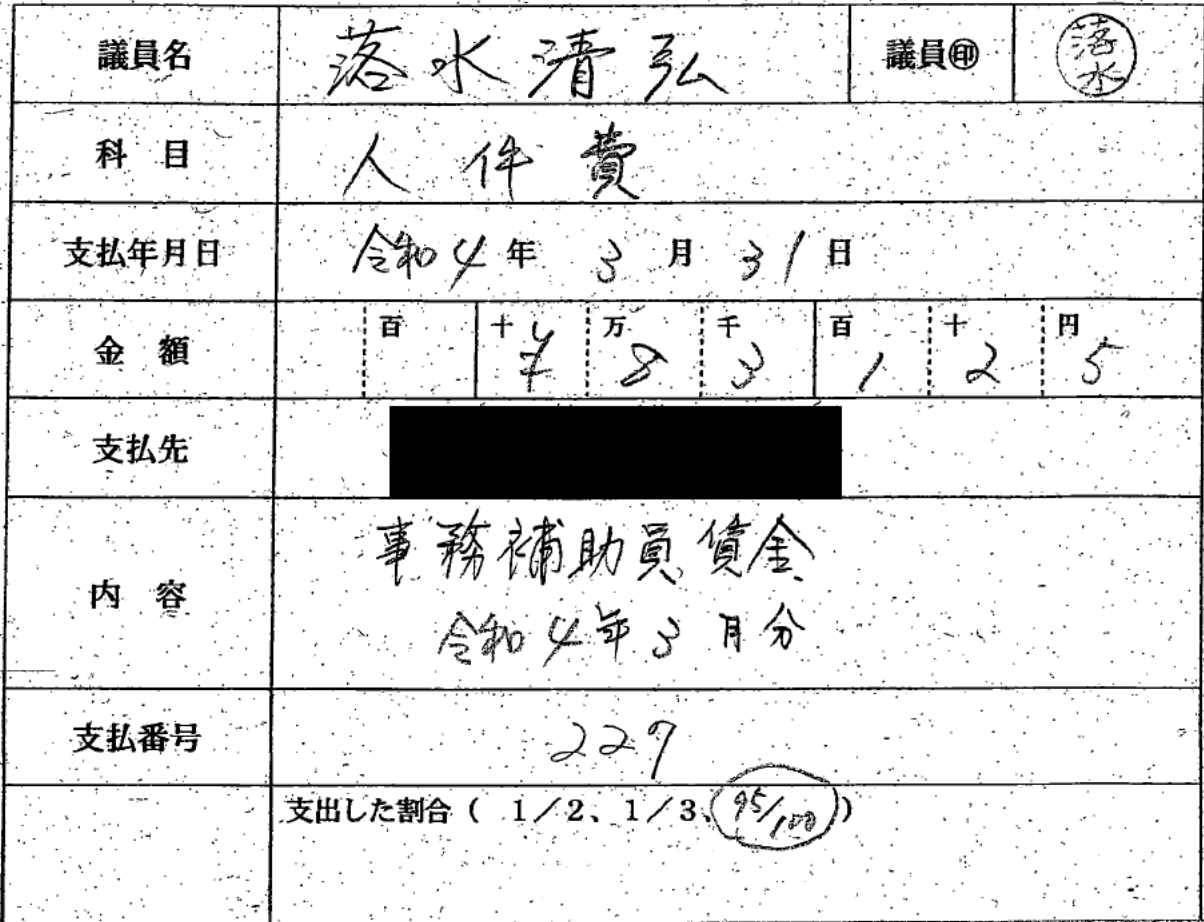 議員名 落水清弘 議員㊞ 落水
科 目 人件費
支払年月日 令和4年 3月 31日
金 額 百 十¥ 万8 千3 百1 十2 円5
支払先
内 容 事務補助員賃金
令和4年3月分
支払番号 227
支出した割合（ 1／2、1／3、95/100）